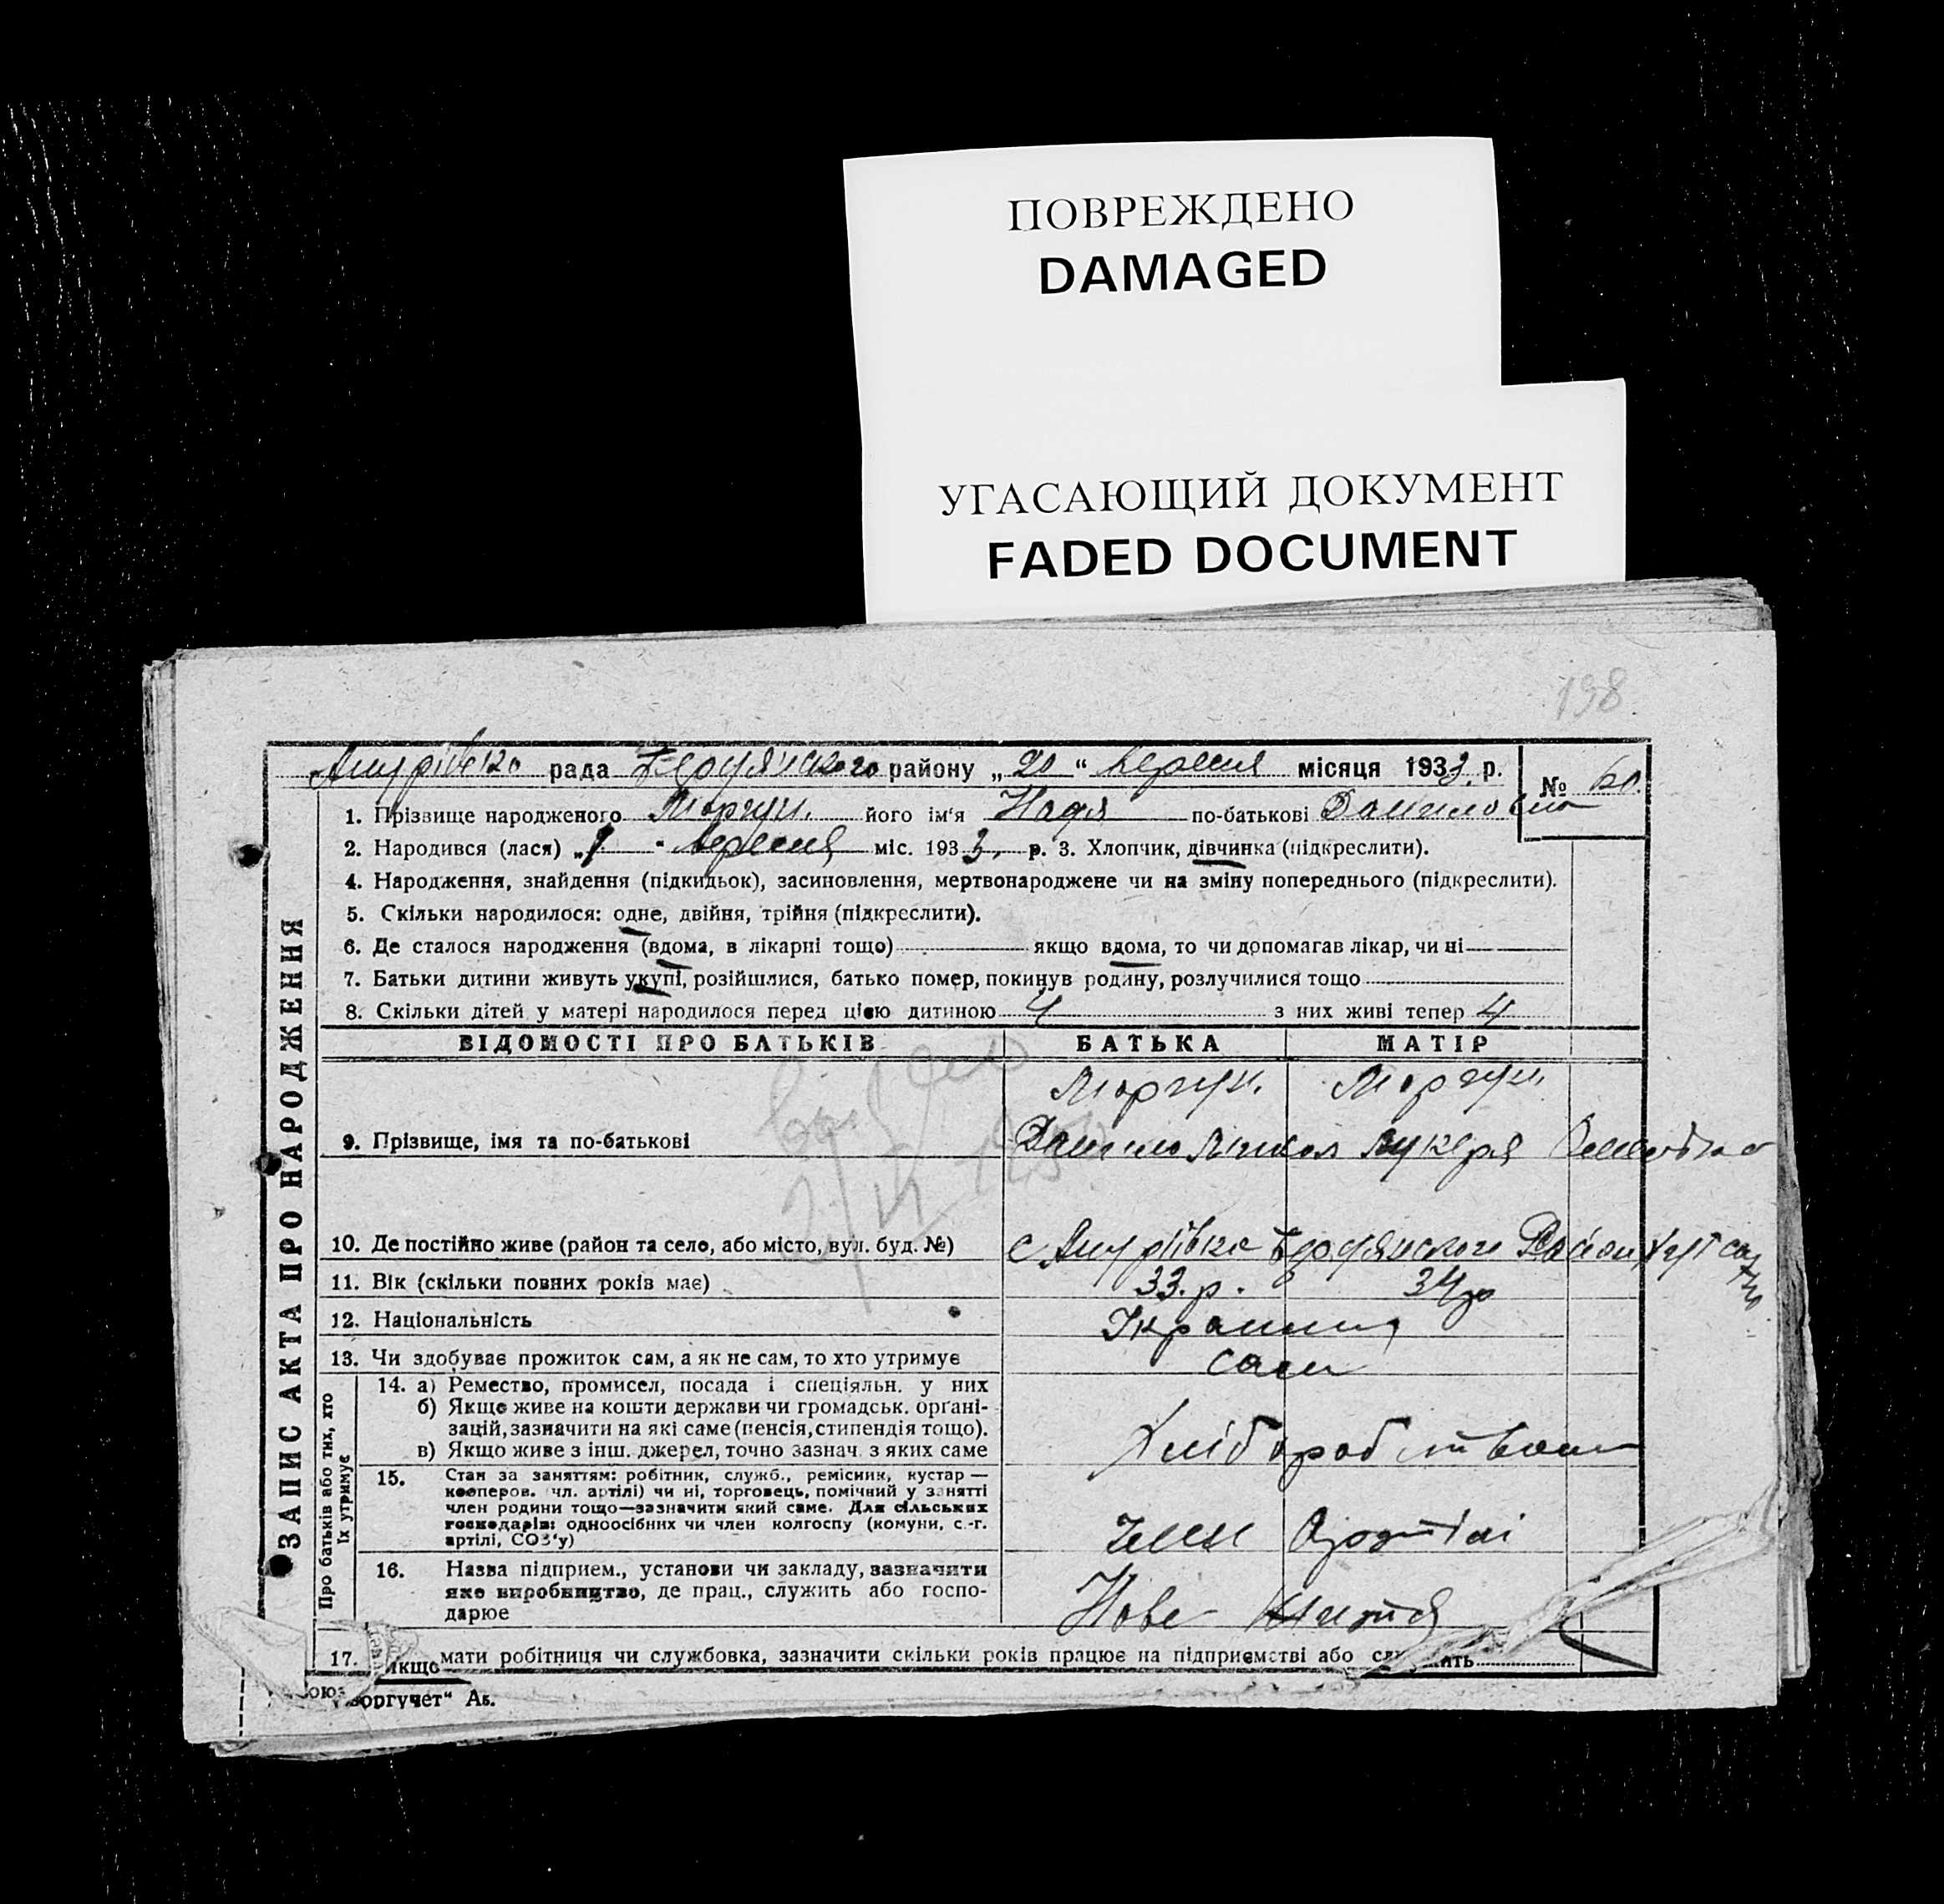 ПОВРЕЖДЕНО
DAMAGED
УГАСАЮЩИЙ ДОКУМЕНТ
FADED DOCUMENT
198
рада району „20“ вересня місяця 1933 р. № 60.
1. Прізвище народженого Моргун. його ім'я Надя по-батькові Даниловна
2. Народився (лася) „ “ вересня міс. 1933. р. 3. Хлопчик, дівчинка (підкреслити).
4. Народження, знайдення (підкидьок), засиновлення, мертвонароджене чи на зміну попереднього (підкреслити).
5. Скільки народилося: одне, двійня, трійня (підкреслити).
6. Де сталося народження (вдома, в лікарні тощо) якщо вдома, то чи допомагав лікар, чи ні
7. Батьки дитини живуть укупі, розійшлися, батько помер, покинув родину, розлучилися тощо
8. Скільки дітей у матері народилося перед цією дитиною 4 з них живі тепер 4
ВІДОМОСТІ ПРО БАТЬКІВ БАТЬКА МАТІР
Моргун. Моргун.
9. Прізвище, імя та по-батькові Данило Лукеря
10. Де постійно живе (район та село, або місто, вул. буд. №) с
11. Вік (скільки повних років має) 33.р. 34р
12. Національність Украинц
13. Чи здобуває прожиток сам, а як не сам, то хто утримує сами
14. а) Ремество, промисел, посада і спеціяльн. у них
б) Якщо живе на кошти держави чи громадськ. органі-
зацій, зазначити на які саме (пенсія, стипендія тощо).
в) Якщо живе з інш. джерел, точно зазнач. з яких саме
Хліборобством
15. Стан за заняттям: робітник, служб., ремісник, кустар —
кооперов. (чл. артілі) чи ні, торговець, помічний у занятті
член родини тощо—зазначити який саме. Для сільських
господарів: одноосібних чи член колгоспу (комуни, с.-г.
артілі, СОЗ'у)
член
16. Назва підприєм., установи чи закладу, зазначити
яке виробництво, де прац., служить або госпо-
дарює
Нове Життя
17. Якщо мати робітниця чи службовка, зазначити скільки років працює на підприємстві або служить
„Союзоргучет“ Аб.
ЗАПИС АКТА ПРО НАРОДЖЕННЯ
Про батьків або тих, хто
їх утримує